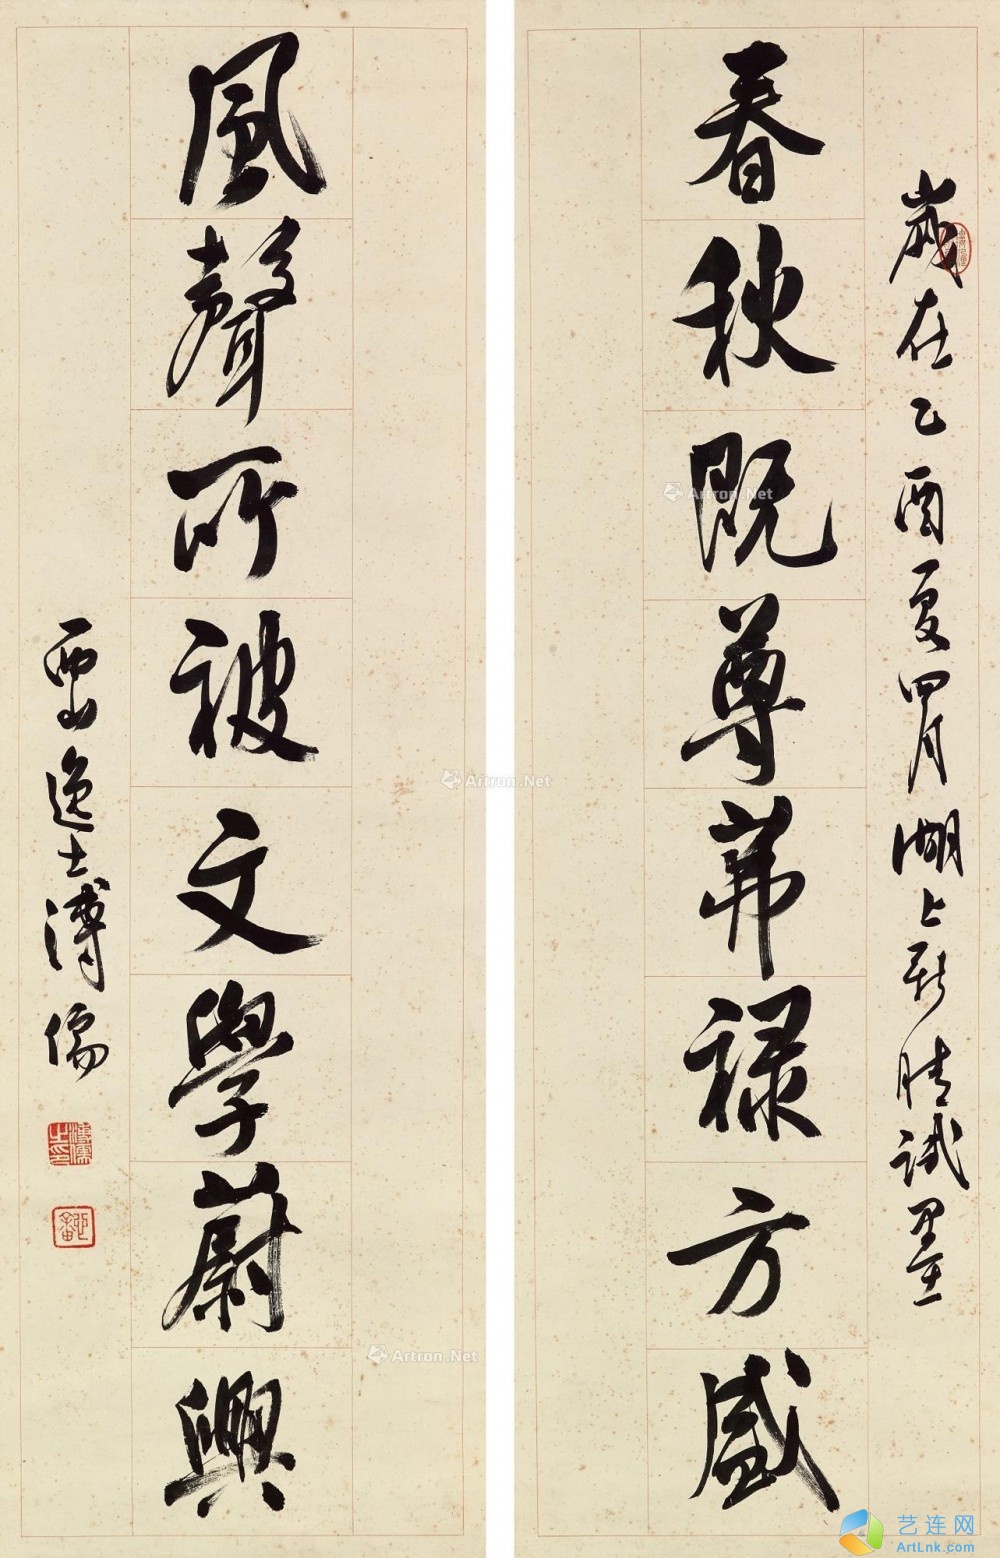 歲在乙酉夏四月湖上新晴試墨
春秋既尊茀祿方盛
風聲所被文學蔚興
西山逸士溥儒
溥儒之印
心畬
Artron.Net
Artron.Net
Artron.Net
艺连网
ArtLnk.com